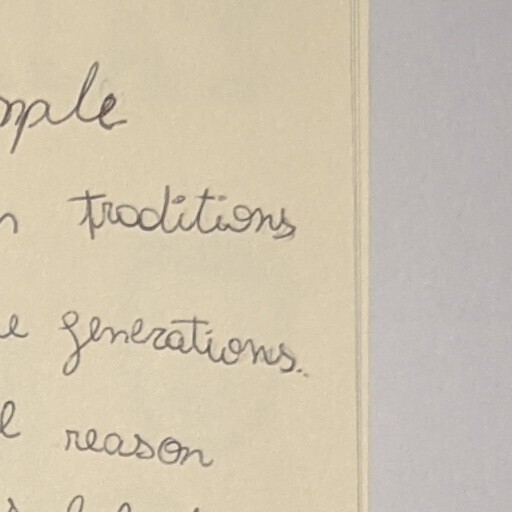 mple
n traditions
e generations.
l reason